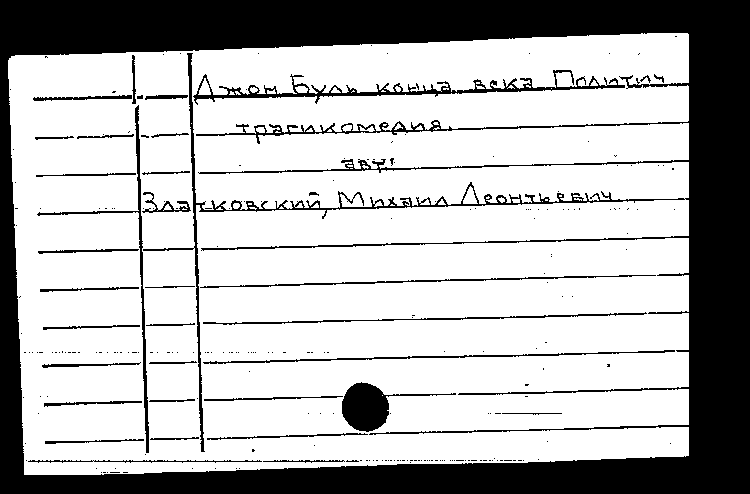 Джон Буль конца века Политич
трагикомедия.
авт:
Златковский, Михаил Леонтьевич